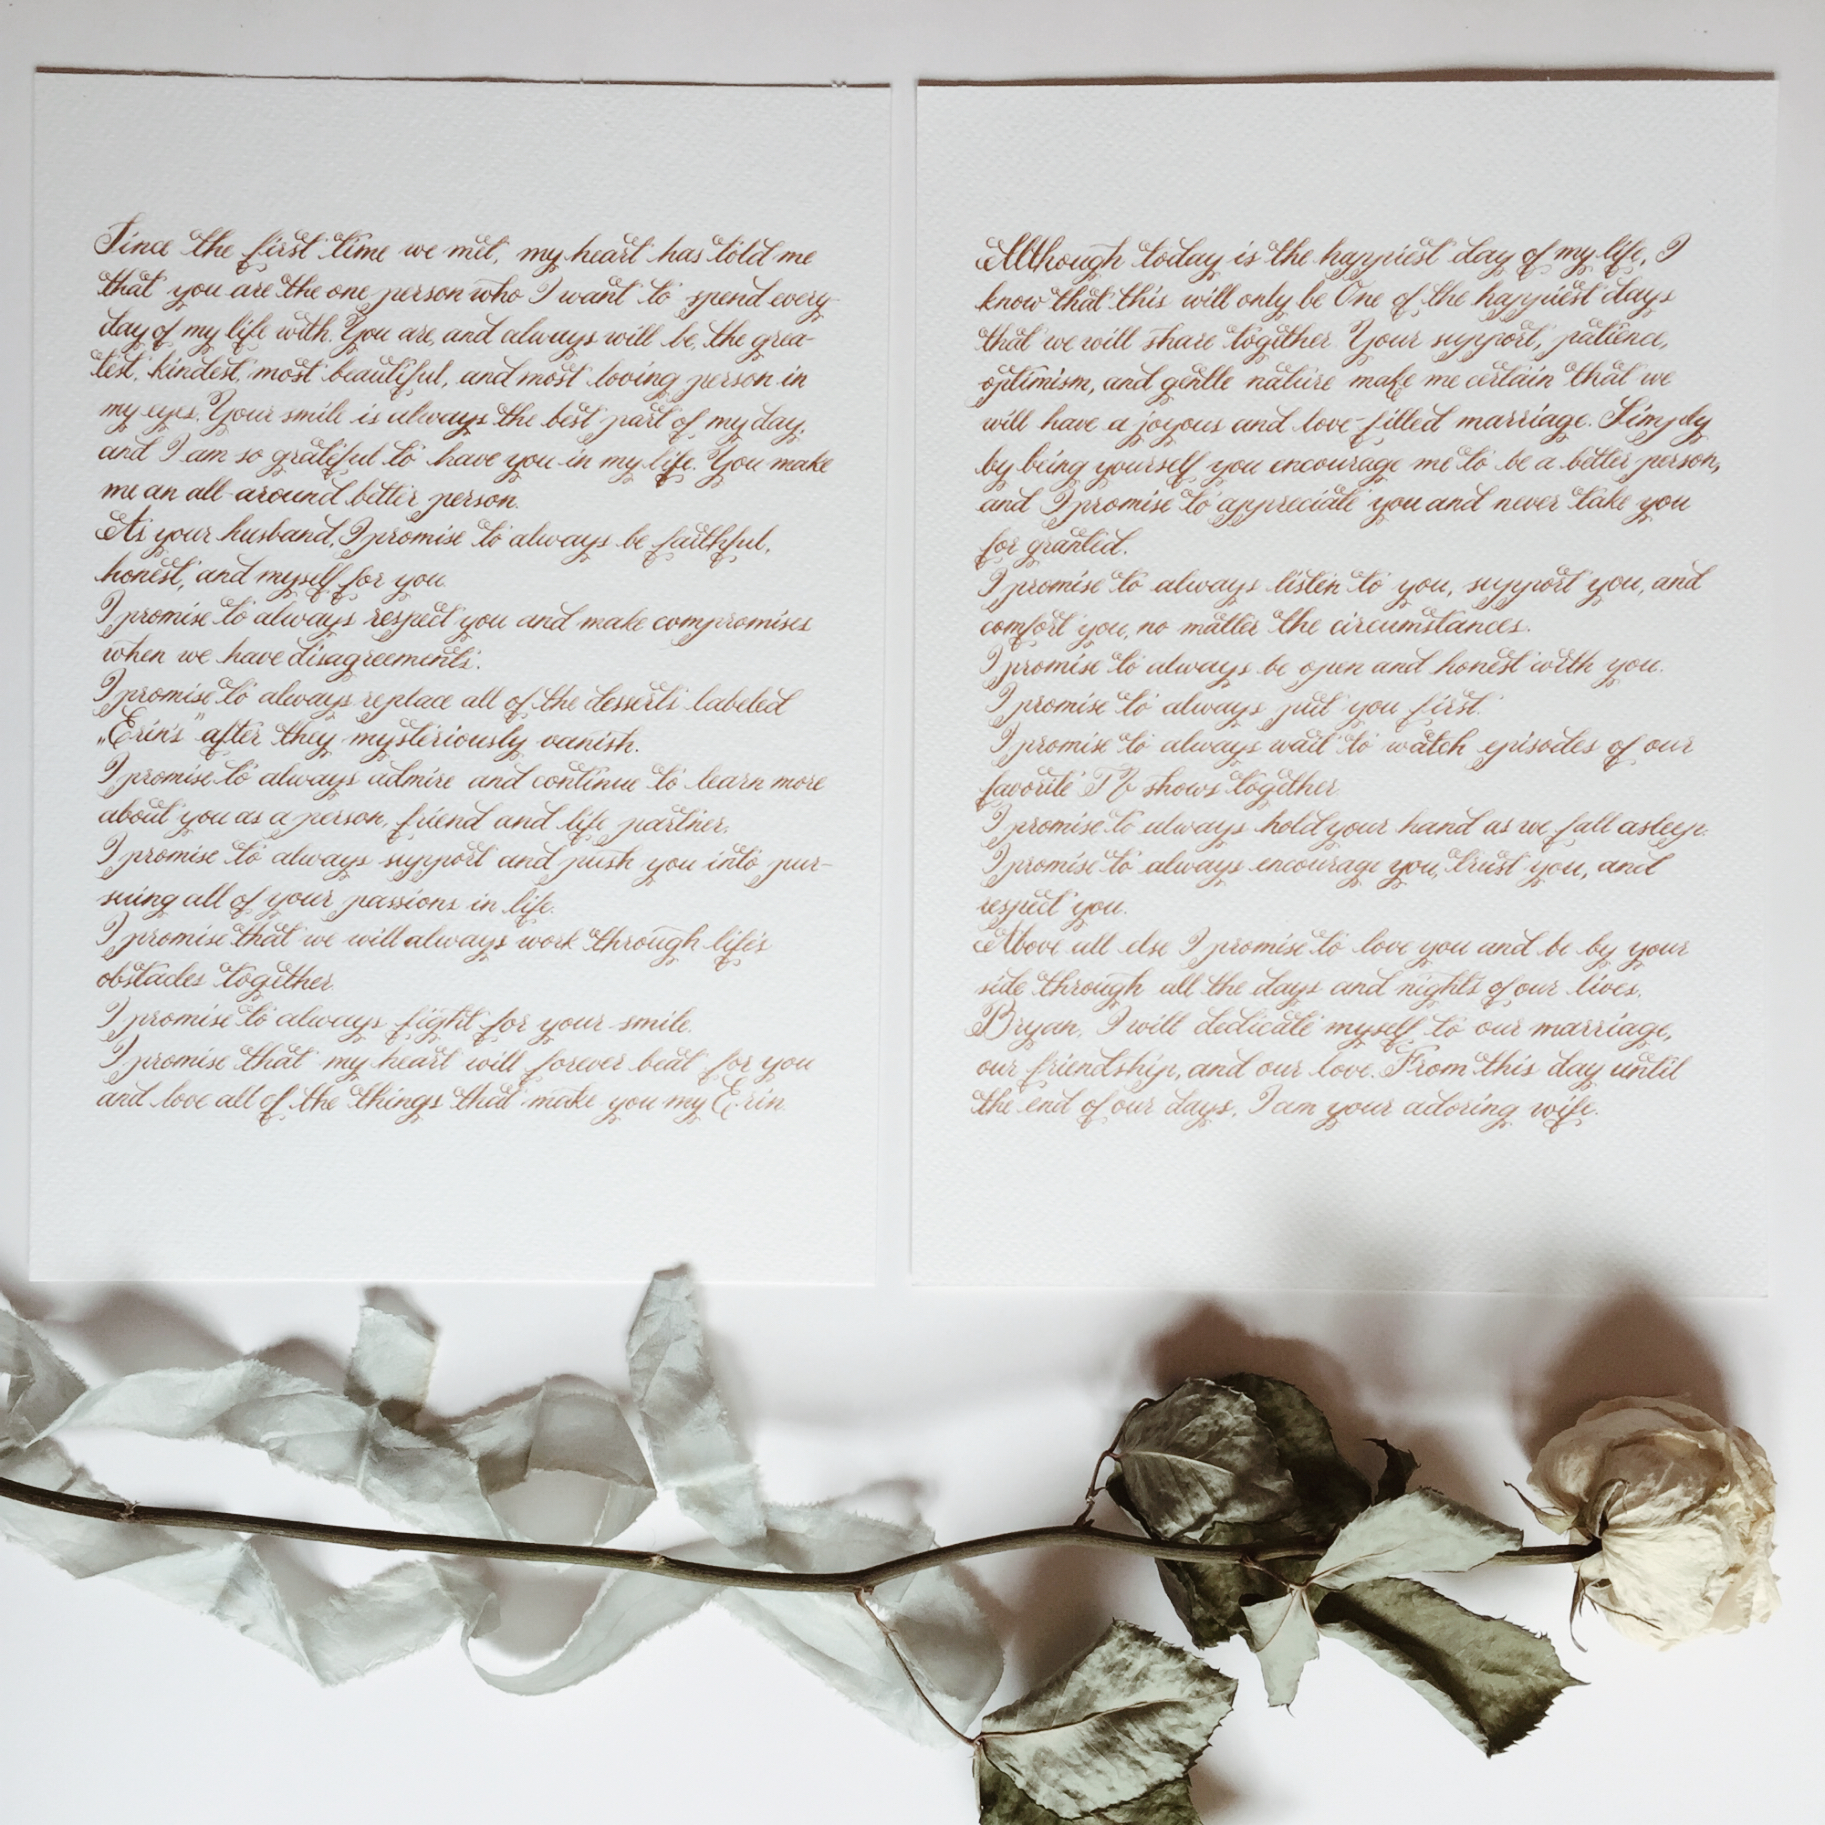 Since the first time we met, my heart has told me
that you are the one person who I want to spend every
day of my life with. You are, and always will be, the grea-
test, kindest, most beautiful, and most loving person in
my eyes. Your smile is always the best part of my day,
and I am so grateful to have you in my life. You make
me an all-around better person.
As your husband, I promise to always be faithful,
honest, and myself for you.
I promise to always respect you and make compromises
when we have disagreements.
I promise to always replace all of the desserts labeled
„Erin's" after they mysteriously vanish.
I promise to always admire and continue to learn more
about you as a person, friend and life partner.
I promise to always support and push you into pur-
suing all of your passions in life.
I promise that we will always work through life's
obstacles together.
I promise to always fight for your smile.
I promise that my heart will forever beat for you
and love all of the things that make you my Erin.
Although today is the happiest day of my life, I
know that this will only be One of the happiest days
that we will share together. Your support, patience,
optimism, and gentle nature make me certain that we
will have a joyous and love-filled marriage. Simply
by being yourself you encourage me to be a better person,
and I promise to appreciate you and never take you
for granted.
I promise to always listen to you, support you, and
comfort you, no matter the circumstances.
I promise to always be open and honest with you.
I promise to always put you first.
I promise to always wait to watch episodes of our
favorite TV shows together.
I promise to always hold your hand as we fall asleep.
I promise to always encourage you, trust you, and
respect you.
Above all else I promise to love you and be by your
side through all the days and nights of our lives.
Bryan, I will dedicate myself to our marriage,
our friendship, and our love. From this day until
the end of our days, I am your adoring wife.